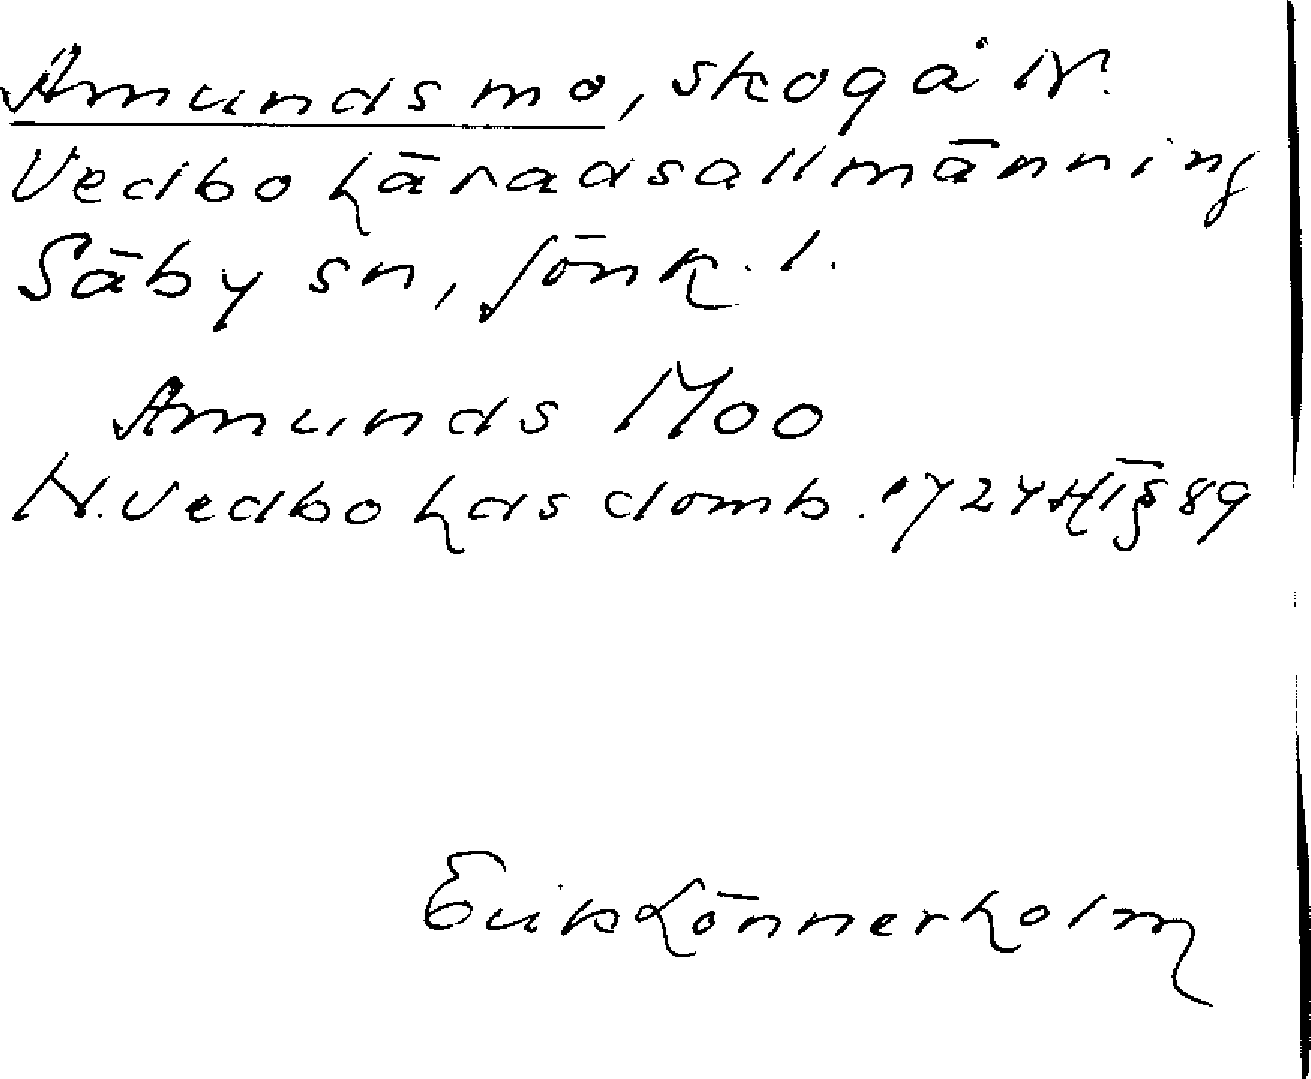 Amundsmo, skog å N.
Vedbo häradsallmänning
Säby sn, Jönk. l.
Amunds Moo
N. Vedbo hds domb. 1724 HT § 89
Erik Lönnerholm